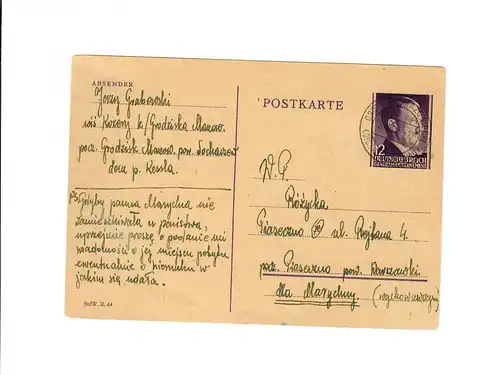 ABSENDER
Jerzy Grabowski
wieś Kozery k/Grodziska Mazow.
pocz. Grodzisk Mazow. pow. Sochaczew
dom p. Kessla.
Gdyby panna Marychna nie
zamieszkiwała u państwa,
uprzejmie proszę o podanie mi
wiadomości o jej miejscu pobytu
ewentualnie o kierunku w
jakim się udała.
StdW. II. 44
POSTKARTE
12
DEUTSCHES REICH
GENERALGOUVERNEMENT
W.P.
Różycka
Piaseczno ul. 4
pocz. Piaseczno pow. Warszawski
dla Marychny.